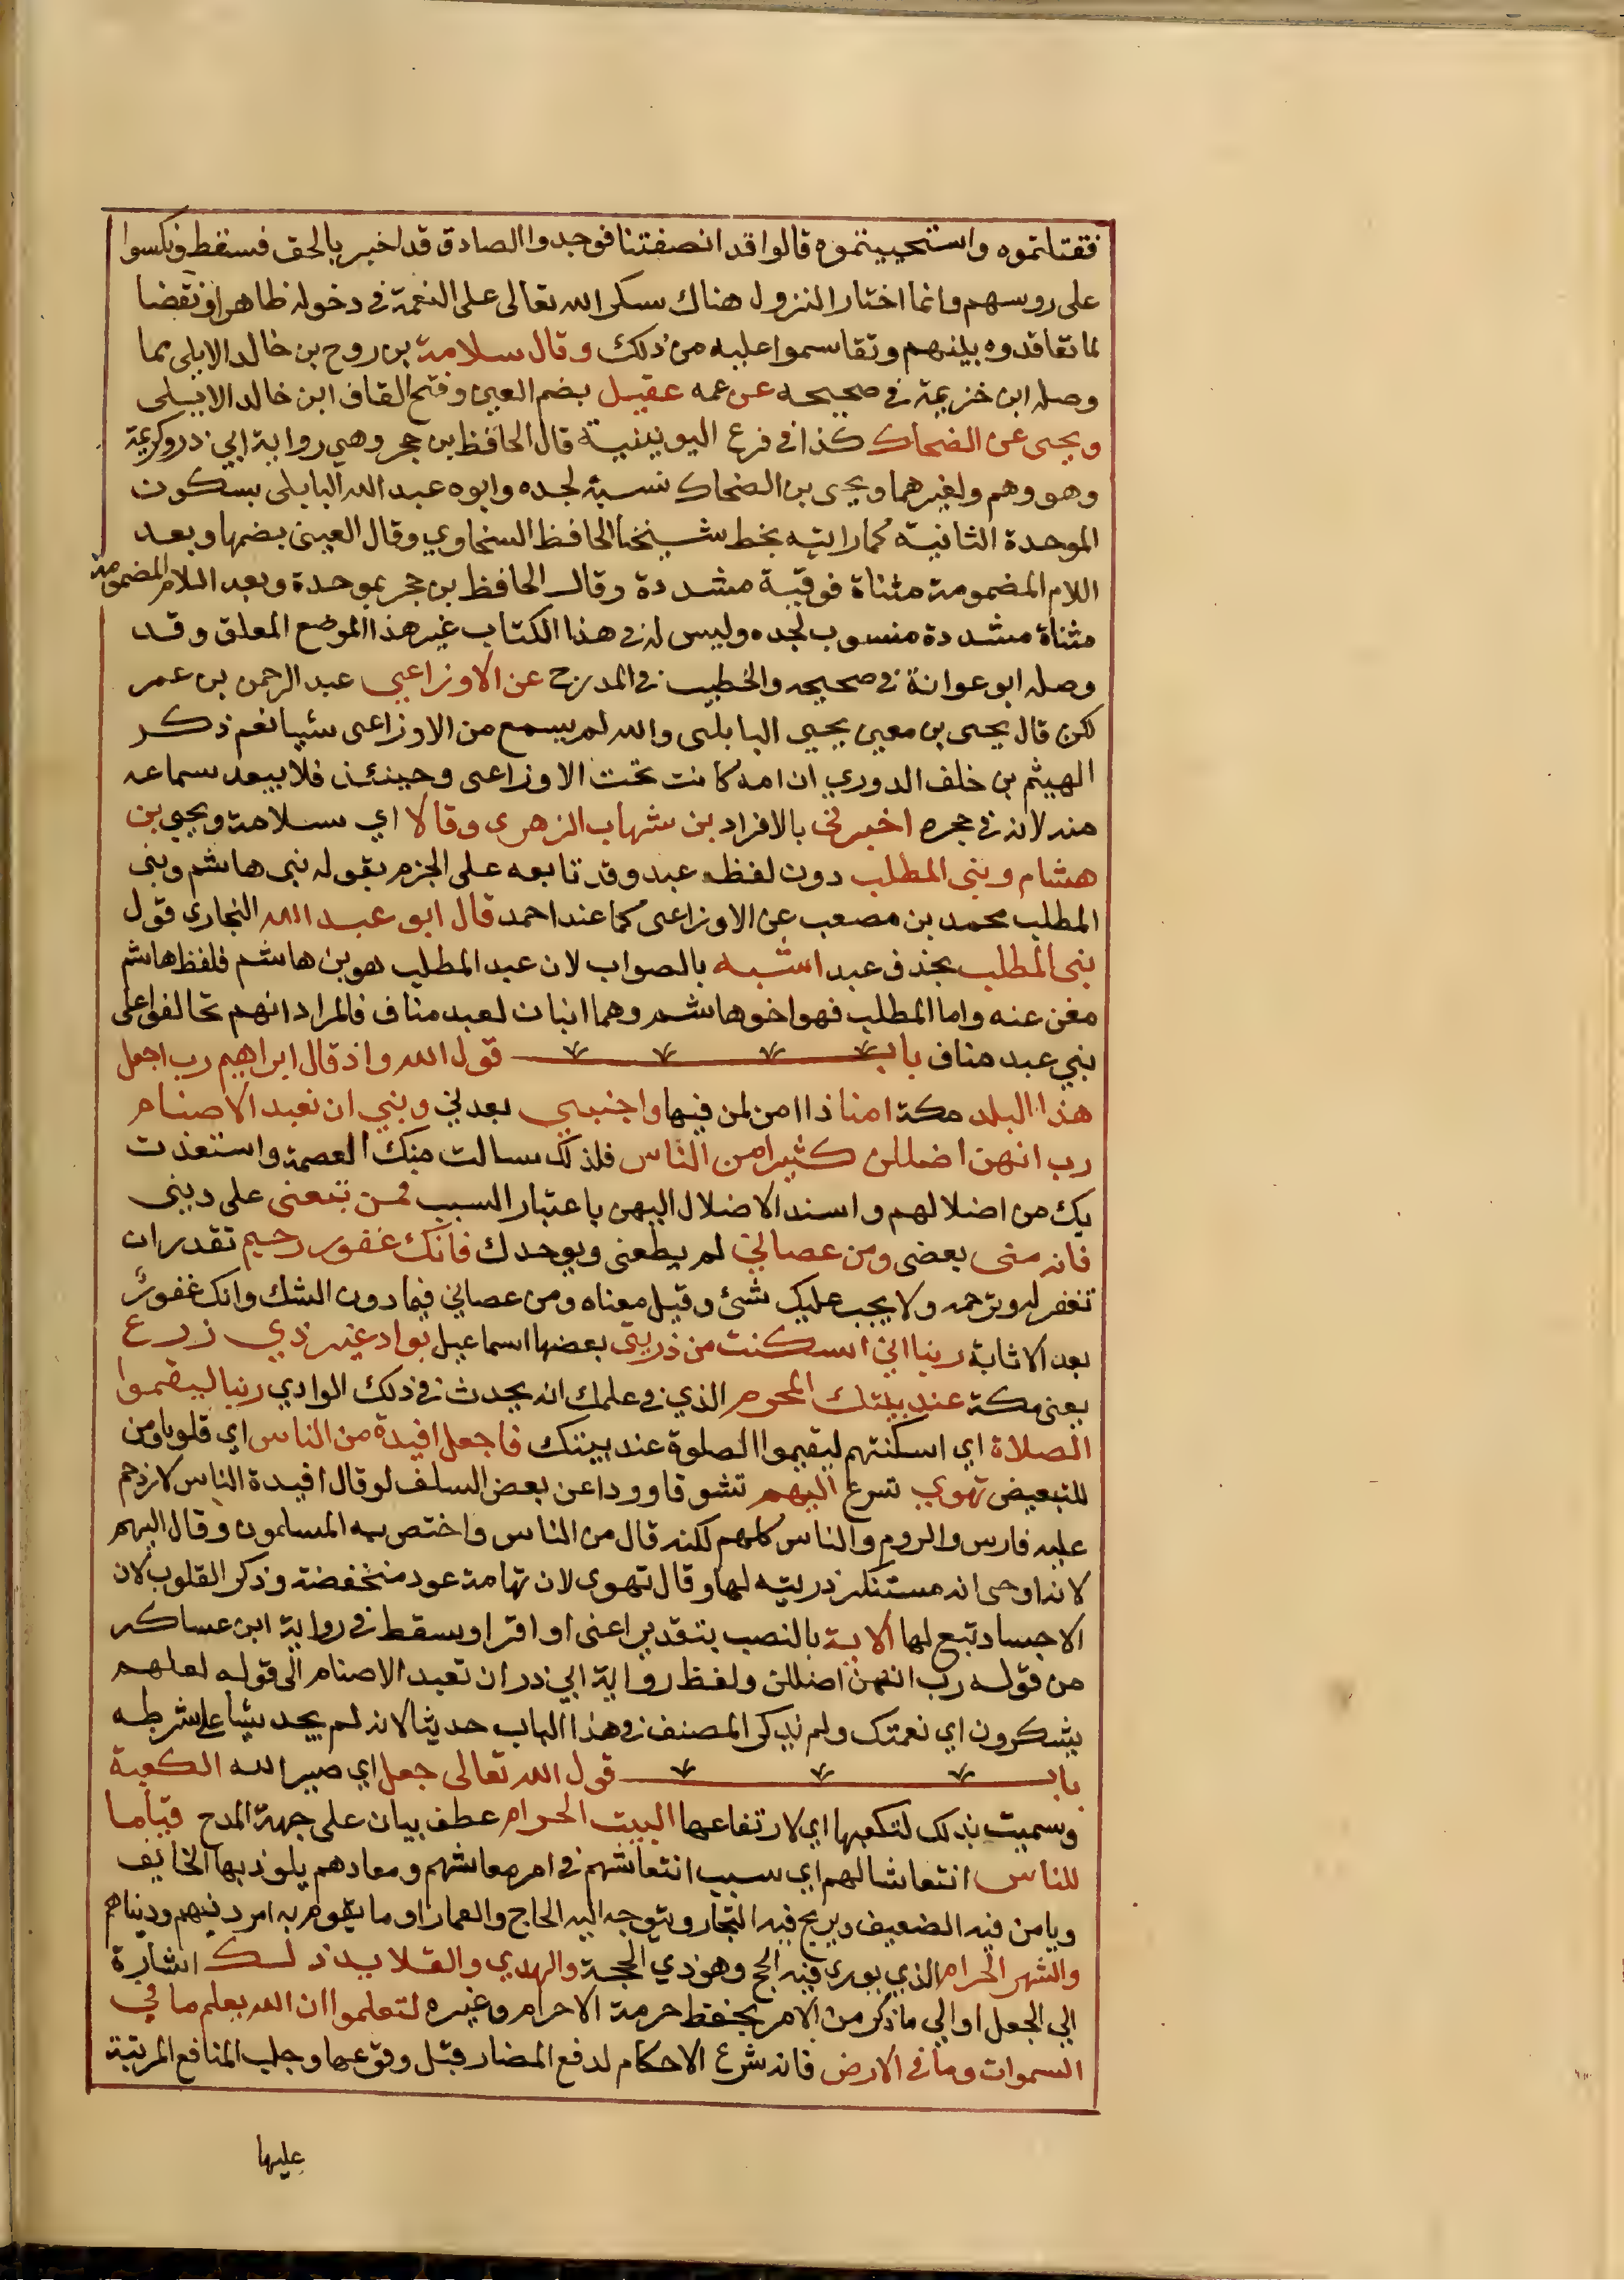 فقتلتموه واستحييتموه قالوا قد انصفتنا فوجدوا الصادق قد اخبر بالحق فسقط ونكسوا
على روسهم وانما اختار النزول هناك سكرا لله تعالى على النعمة في دخوله ظاهرا ونقضا
لما تعاقدوه بينهم وتقاسموا عليه من ذلك وقال سلامة بن روح بن خالد الايلي مما
وصله ابن خزيمة في صحيحه عن عمه عقيل بضم العين وفتح القاف ابن خالد الايلي
ويحيى عن الضحاك كذا في فرع اليونينية قال الحافظ بن حجر وهي رواية ابي ذر وكريمة
وهو وهم ولغيرهما ويحيى بن الضحاك نسبة لجده وابوه عبد الله البابلي بسكون
الموحدة الثانية كما رايته بخط شيخنا الحافظ السخاوي وقال العيني بضمها وبعد
اللام المضمومة مثناة فوقية مشددة وقال الحافظ بن حجر بموحدة وبعد اللام المضمومة
مثناة مشددة منسوب لجده وليس له في هذا الكتاب غير هذا الموضع المعلق وقد
وصله ابو عوانة في صحيحه والخطيب في المدرج عن الاوزاعي عبد الرحمن بن عمر
لكن قال يحيى بن معين يحيى البابلى والله لم يسمع من الاوزاعى شيا نعم ذكر
الهيثم بن خلف الدوري ان امه كانت تحت الاوزاعى وحينئذ فلا يبعد سماعه
منه لانه في حجره اخبرني بالافراد بن شهاب الزهرى وقالا اي سلامة ويحيى بن
هشام وبنى المطلب دون لفظ عبد وقد تابعه على الجزم بقوله بنى هاشم وبنى
المطلب محمد بن مصعب عن الاوزاعى كما عند احمد قال ابو عبد الله البخاري قول
بنى المطلب بحذف عبد اشبه بالصواب لان عبد المطلب هو بن هاشم فلفظ هاشم
مغن عنه واما المطلب فهو اخو هاشم وهما ابنان لعبد مناف فالمراد انهم تحالفوا على
بني عبد مناف باب قول الله واذ قال ابراهيم رب اجعل
هذا البلد مكة امنا ذا امن لمن فيها واجنبني بعدني وبني ان نعبد الاصنام
رب انهن اضللن كثيرا من الناس فلذلك سالت منك العصمة واستعذت
بك من اضلالهم واسند الاضلال اليهن باعتبار السبب فمن تبعنى على دينى
فانه منى بعضى ومن عصاني لم يطعنى ويوحدك فانك غفور رحيم تقدر ان
تغفر له وترحمه ولا يجب عليك شئ وقيل معناه ومن عصاني فيما دون الشك وانك غفور
بعد الاثابة ربنا انى اسكنت من ذريتى بعضها اسماعيل بواد غير ذي زرع
يعنى مكة عند بيتك المحرم الذي في علمك انه يحدث في ذلك الوادي ربنا ليقيموا
الصلاة اي اسكنتهم ليقيموا الصلوة عند بيتك فاجعل افيدة من الناس اي قلوبا ومن
للتبعيض تهوي تسرع اليهم تشوقا وودا عن بعض السلف لو قال افيدة الناس لازدحم
عليه فارس والروم والناس كلهم لكنه قال من الناس واختص به المسلمون وقال اليهم
لانه اوحى انه مستنكر ذريته لها وقال تهوى لان تهامة عود منخفضة وذكر القلوب لان
الاجساد تبع لها الاية بالنصب بتقدير اعنى او اقرا وسقط في رواية ابن عساكر
من قوله رب انهن اضللن ولفظ رواية ابي ذر ان تعبد الاصنام الى قوله لعلهم
يشكرون اي نعمتك ولم يذكر المصنف في هذا الباب حديثا لانه لم يجد شيا على شرطه
باب قول الله تعالى جعل اي صير الله الكعبة
وسميت بذلك لتكعبها اي لارتفاعها البيت الحرام عطف بيان على جهة المدح قياما
للناس انتعاشا لهم اي سبب انتعاشهم في امر معاشهم ومعادهم يلوذ بها الخايف
ويامن فيه الضعيف ويربح فيه التجار ويتوجه اليه الحاج والعمار او ما يقوم به امر دينهم ودنياهم
والشهر الحرام الذي يودى فيه الحج وهو ذي الحجة والهدي والقلايد ذلك اشارة
الي الجعل او الي ما ذكر من الامر بحفظ حرمة الاحرام وغيره لتعلموا ان الله يعلم ما في
السموات وما في الارض فانه شرع الاحكام لدفع المضار قبل وقوعها وجلب المنافع المرتبة
عليها